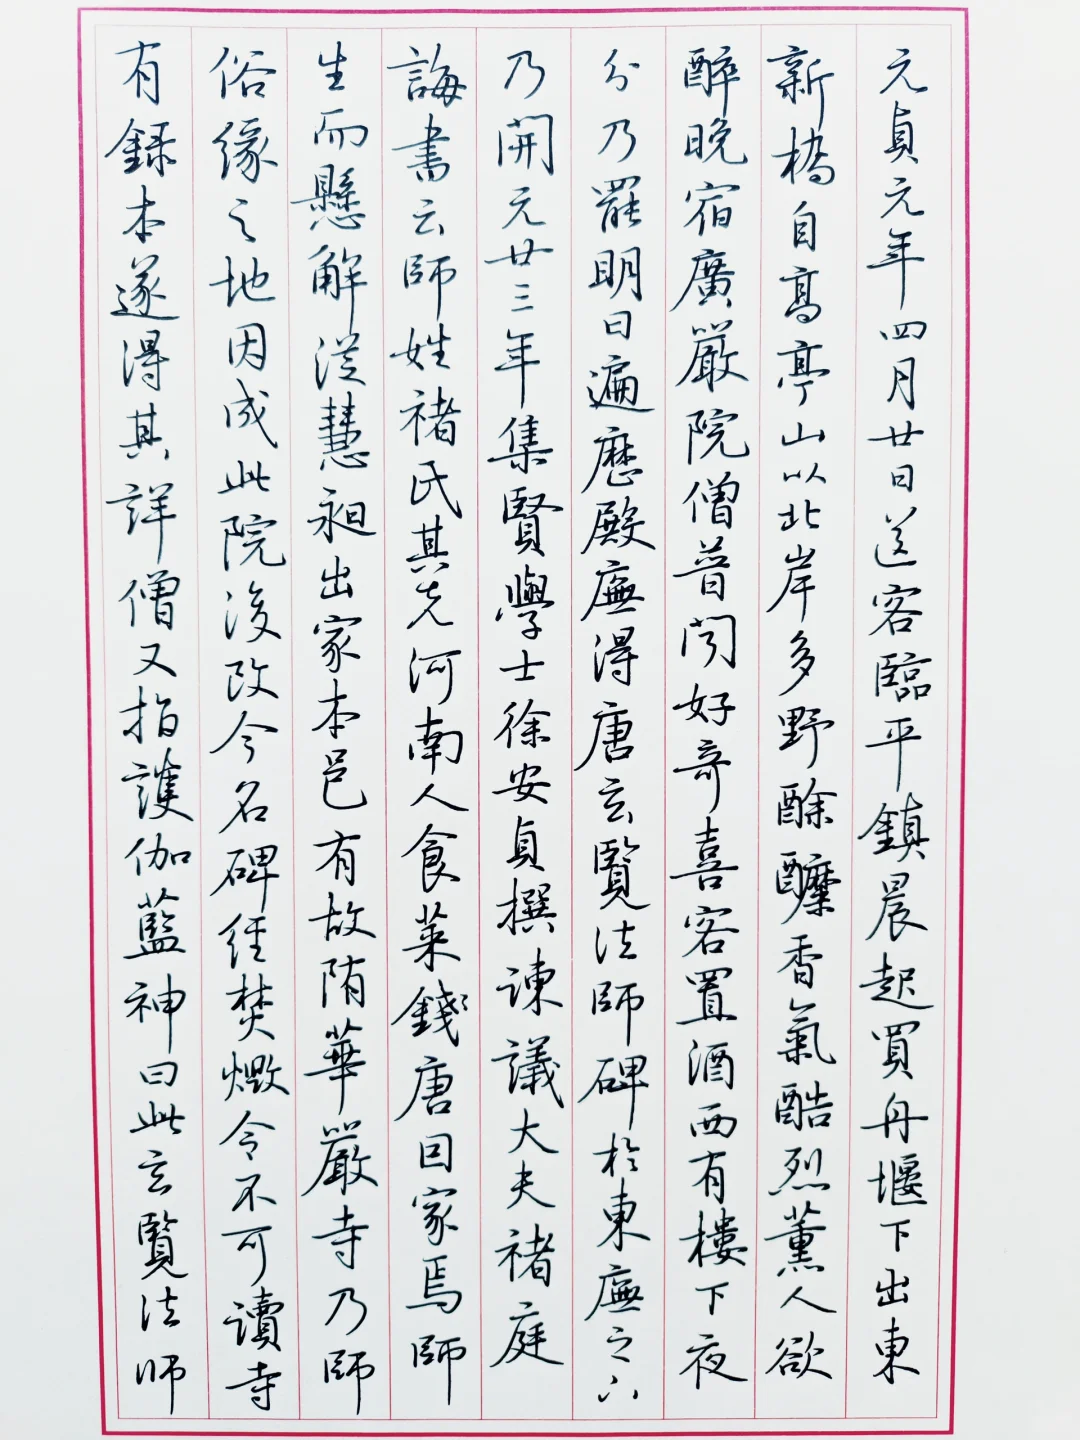 元貞元年四月廿日送客臨平鎮晨起買舟堰下出東
新橋自高亭山以北岸多野酴醾香氣酷烈薰人欲
醉晚宿廣嚴院僧普闻好奇喜客置酒西有樓下夜
分乃罷明日遍歷殿廡得唐玄覽法師碑於東廡之下
乃開元廿三年集賢學士徐安貞撰諫議大夫褚庭
誨書云師姓褚氏其先河南人食菜錢唐因家焉師
生而懸解從慧昶出家本邑有故隋華嚴寺乃師
俗緣之地因成此院後改今名碑經焚燬令不可讀寺
有録本遂得其詳僧又指護伽藍神曰此玄覽法師